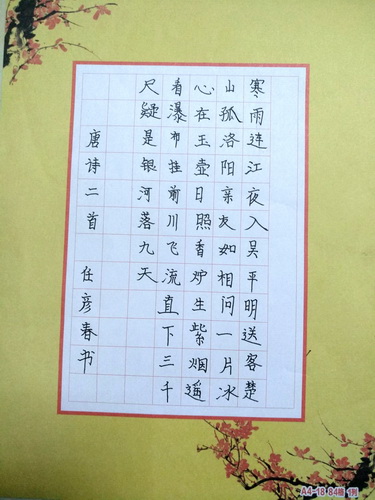 寒雨连江夜入吴平明送客楚
山孤洛阳亲友如相问一片冰
心在玉壶日照香炉生紫烟遥
看瀑布挂前川飞流直下三千
尺疑是银河落九天
唐诗二首 任彦春书
A4-18 84格